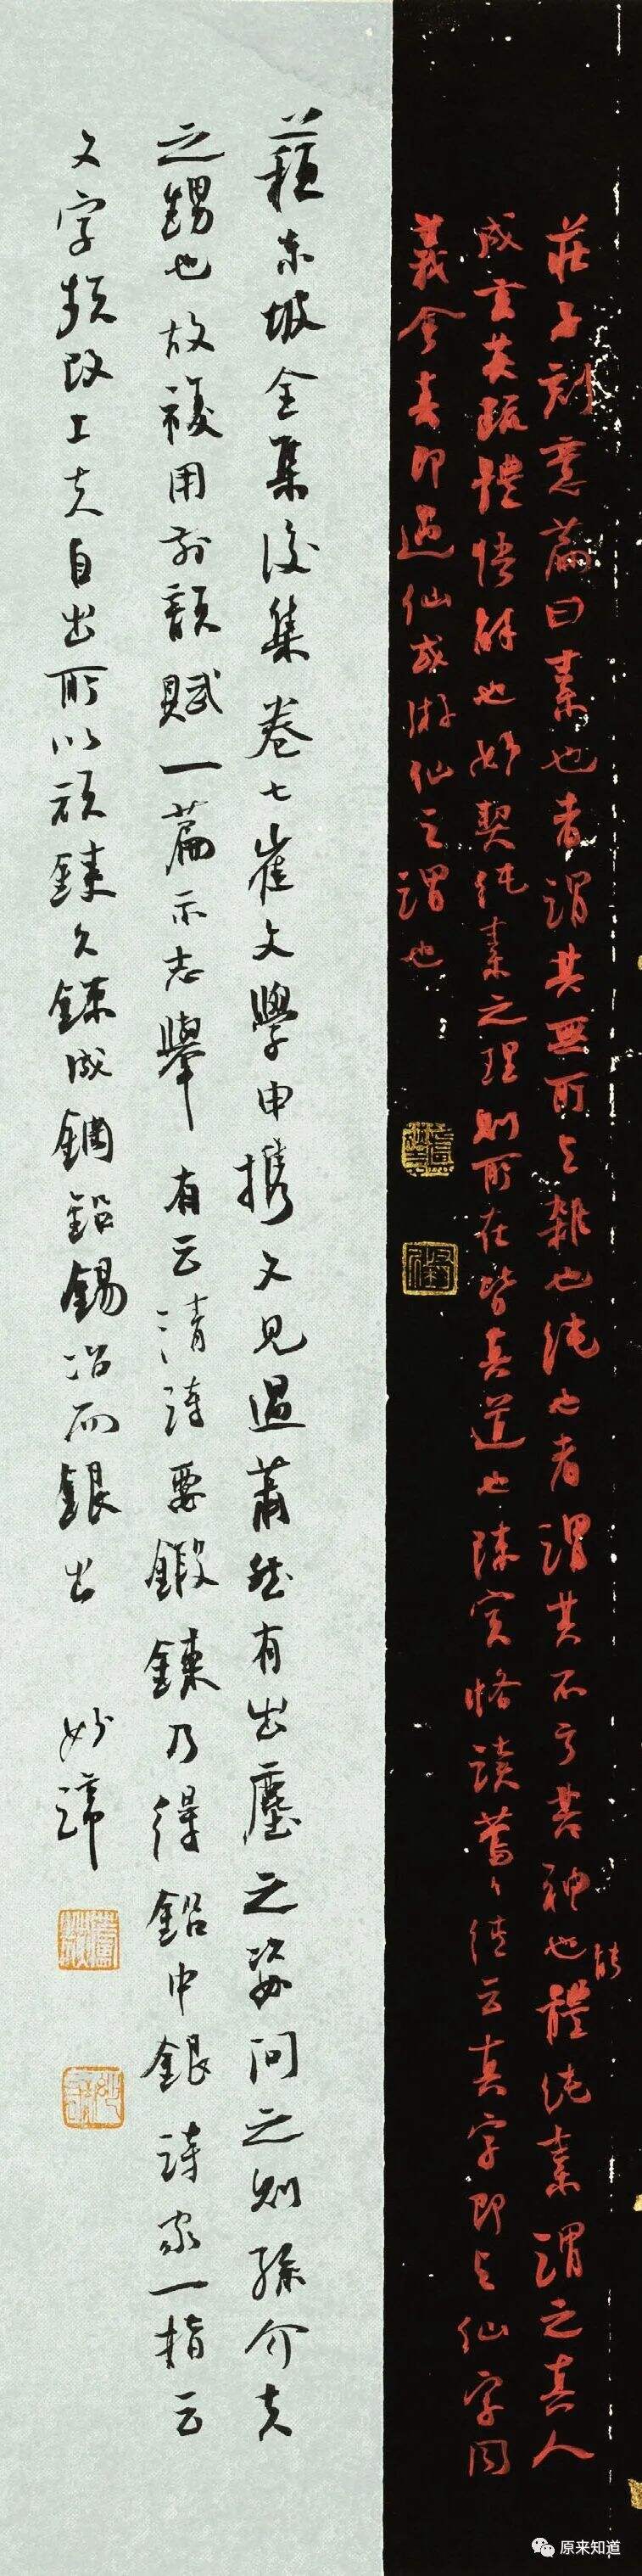 莊子刻意篇曰素也者謂其無所與雜也純也者謂其不虧其神也能體純素謂之真人
成玄英疏體悟解也妙契純素之理則所在皆真道也陳寅恪讀鶯鶯傳云真字即與仙字同
義會真即遇仙或游仙之謂也
蘇東坡全集後集卷七崔文學甲攜文見過蕭然有出塵之姿問之則孫介夫
之甥也故複用前韻賦一篇示志舉有云清詩要鍛鍊乃得鉛中銀詩家一指云
文字頻改工夫自出所以頑鍊久鍊成鋼鉛錫冶而銀出 妙諦
原来知道